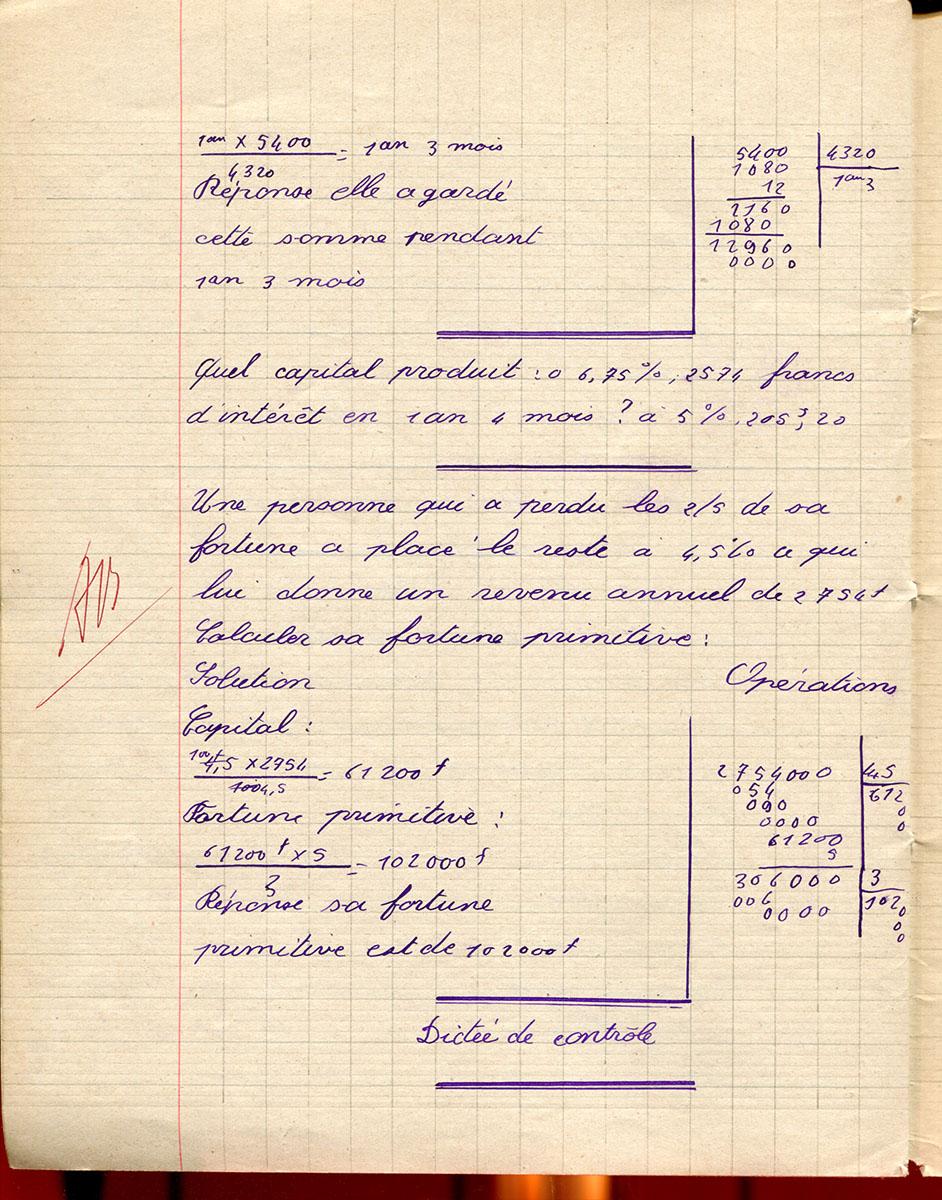 1an x 5400 / 4320 = 1an 3 mois
Réponse elle a gardé
cette somme pendant
1an 3 mois
5400 | 4320
1080 | 1an 3
12
2160
1080
12960
0000
Quel capital produit : à 6,75%, 2574 francs
d'intérêt en 1an 4 mois ? à 5%, 205f,20
Une personne qui a perdu les 2/5 de sa
fortune a placé le reste à 4,5% ce qui
lui donne un revenu annuel de 2754f
Calculer sa fortune primitive :
Solution
Opérations
Capital :
x 2754 / = 61200f
Fortune primitive :
61200f x 5 / 3 = 102000f
Réponse sa fortune
primitive est de 102000f
2754000 | 45
054 | 61200
090
0000
61200
5
306000 | 3
006 | 102000
0000
Dictée de contrôle